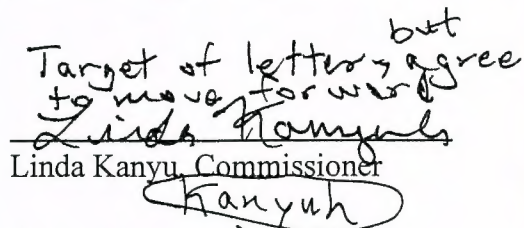 but
Target of letter, agree
to move forward
Linda Kanyuh
Linda Kanyu, Commissioner
Kanyuh